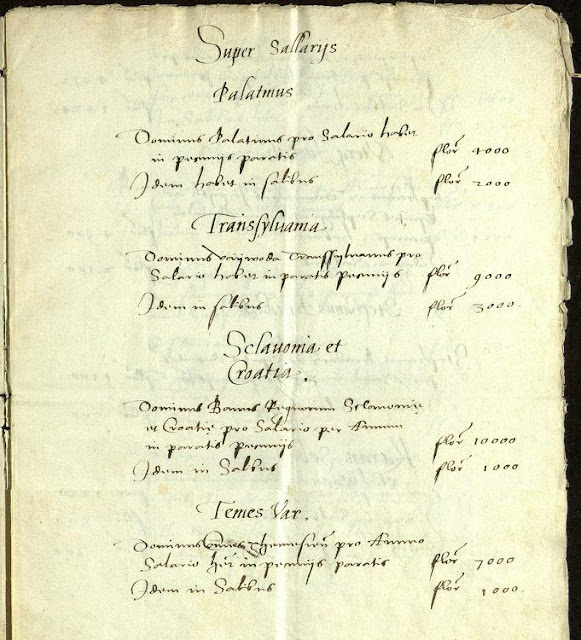 Super Sallarijs
Palatinus
Dominus Palatinus pro Salario habet
in pecunijs paratis flor 4000
Idem habet in salibus flor 2000
Transsylvania
Dominus vayvoda Transsylvanus pro
Salario habet in paratis pecunijs flor 9000
Idem in salibus flor 3000.
Sclavonia et
Croatia.
Dominus Banus Regnorum Sclavonie
et Croatie pro Salario per Annum
in paratis pecunijs flor 10000
Idem in Salibus flor 1000
Temes Var.
Dominus Comes Themesien pro Anno
Salario het in pecunijs paratis flor 7000
Idem in Salibus flor 1000.